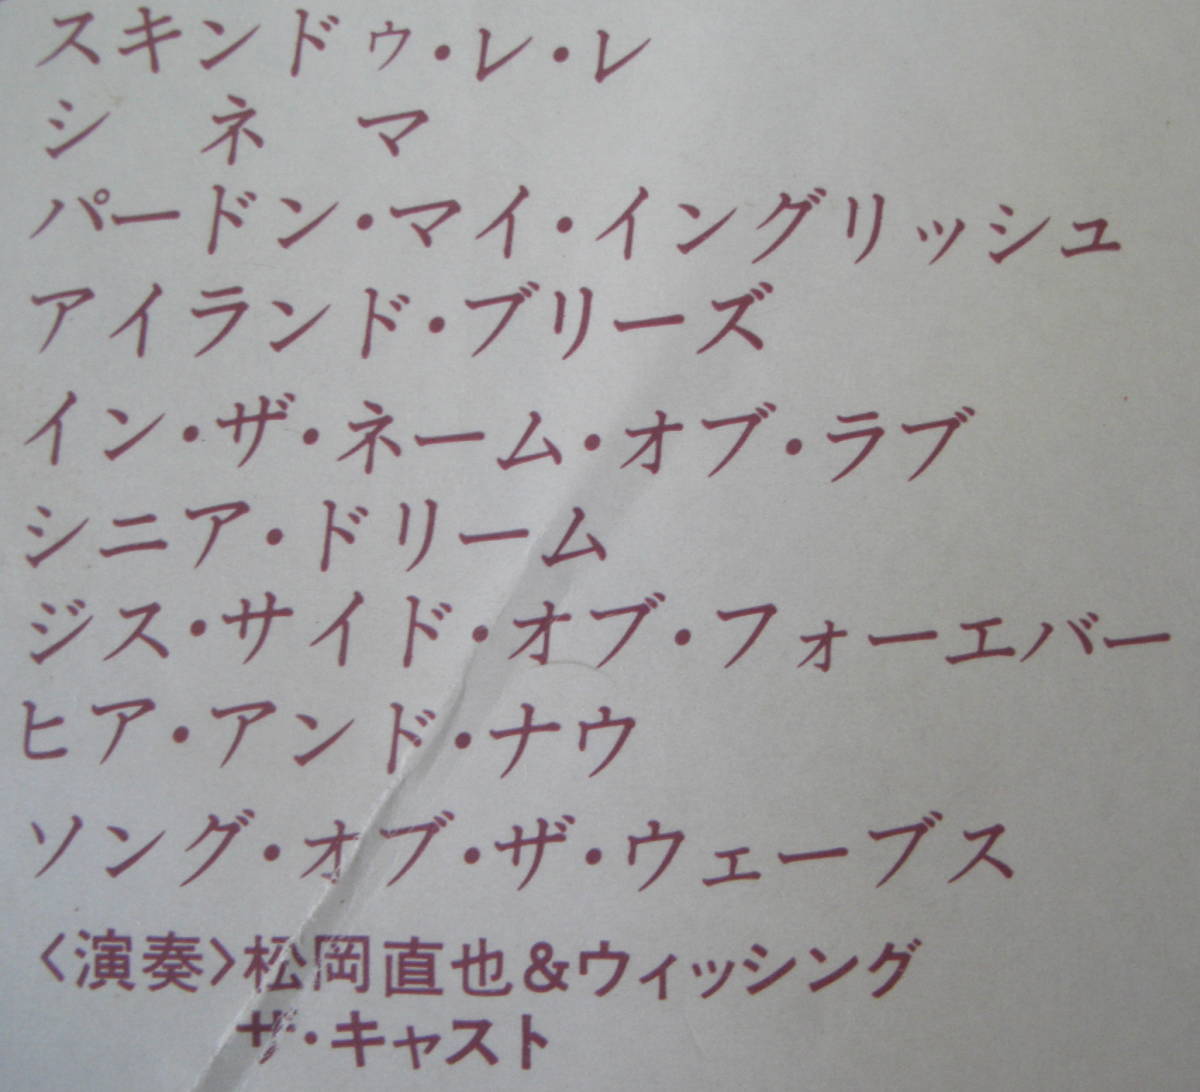 スキンドゥ・レ・レ
シネマ
パードン・マイ・イングリッシュ
アイランド・ブリーズ
イン・ザ・ネーム・オブ・ラブ
シニア・ドリーム
ジス・サイド・オブ・フォーエバー
ヒア・アンド・ナウ
ソング・オブ・ザ・ウェーブス
〈演奏〉松岡直也&ウィッシング
ザ・キャスト